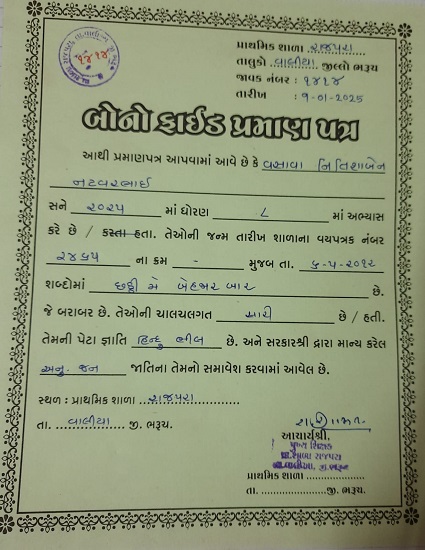 પ્રાથમિક શાળા રાજપરા
તાલુકો વાલીયા જીલ્લો ભરૂચ
જાવક નંબર : ૧૪૧૪
તારીખ : ૧-૦૧-2025
૧૪૧૪
બોનો ફાઈડ પ્રમાણ પત્ર
આથી પ્રમાણપત્ર આપવામાં આવે છે કે વસાવા નિતિશાબેન
નટવરભાઈ
સને ૨૦૨૫ માં ધોરણ ૮ માં અભ્યાસ
કરે છે / કરતા હતા. તેઓની જન્મ તારીખ શાળાના વયપત્રક નંબર
૨૪૬૫ ના ક્રમ - મુજબ તા. ૬-૫-૨૦૧૨
શબ્દોમાં છઠ્ઠી મે બેહજાર બાર છે.
જે બરાબર છે. તેઓની ચાલચલગત સારી છે / હતી.
તેમની પેટા જ્ઞાતિ હિન્દુ ભીલ છે. અને સરકારશ્રી દ્વારા માન્ય કરેલ
અનુ. જન જાતિના તેમનો સમાવેશ કરવામાં આવેલ છે.
સ્થળ : પ્રાથમિક શાળા રાજપરા
તા. વાલીયા જી. ભરૂચ.
આચાર્યશ્રી,
મુખ્ય શિક્ષક
પ્રા.શાળા રાજપરા
તા.વાલીયા, જી.ભરૂચ
પ્રાથમિક શાળા
તા. જી. ભરૂચ.